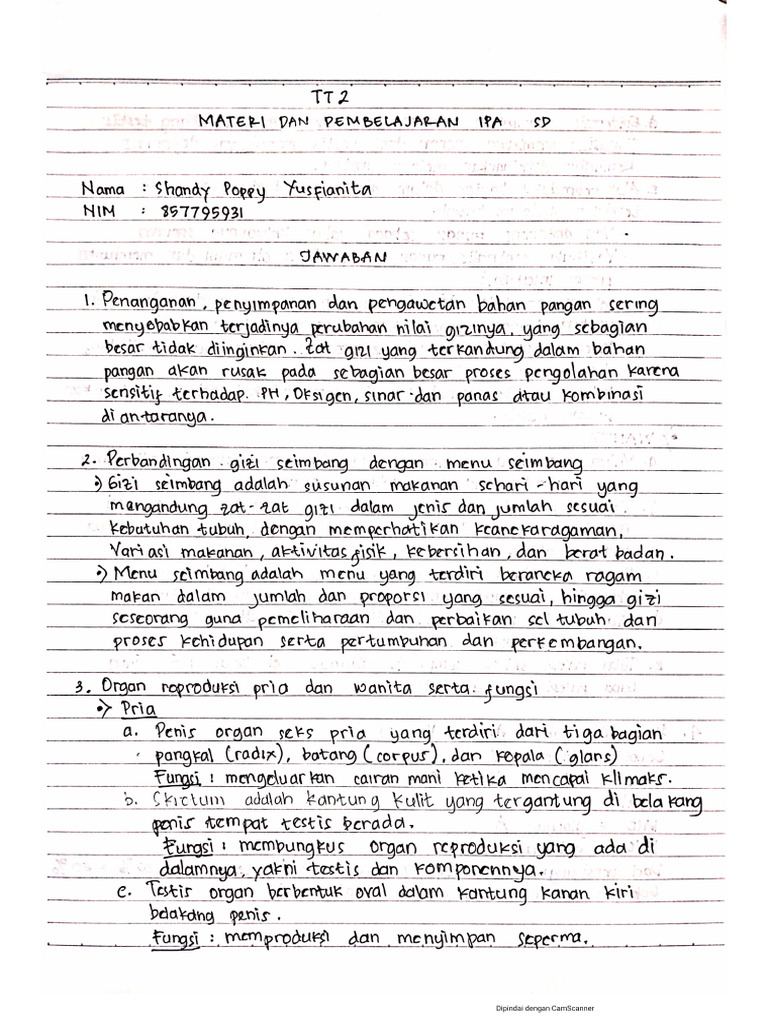 TT2
MATERI DAN PEMBELAJARAN IPA SD
Nama : Shandy Poppy Yusfianita
NIM : 857795931
JAWABAN
1. Penanganan, penyimpanan dan pengawetan bahan pangan sering
menyebabkan terjadinya perubahan nilai gizinya, yang sebagian
besar tidak diinginkan. Zat gizi yang terkandung dalam bahan
pangan akan rusak pada sebagian besar proses pengolahan karena
sensitif terhadap. PH, Oksigen, sinar dan panas atau kombinasi
diantaranya.
2. Perbandingan gizi seimbang dengan menu seimbang
•) Gizi seimbang adalah susunan makanan sehari-hari yang
mengandung zat-zat gizi dalam jenis dan jumlah sesuai
kebutuhan tubuh, dengan memperhatikan keanekaragaman,
Variasi makanan, aktivitas fisik, kebersihan, dan berat badan.
•) Menu seimbang adalah menu yang terdiri beraneka ragam
makan dalam jumlah dan proporsi yang sesuai, hingga gizi
seseorang guna pemeliharaan dan perbaikan sel tubuh dan
proses kehidupan serta pertumbuhan dan perkembangan.
3. Organ reproduksi pria dan wanita serta fungsi
•) Pria
a. Penis organ seks pria yang terdiri dari tiga bagian
pangkal (radix), batang (corpus), dan kepala (glans)
Fungsi : mengeluarkan cairan mani ketika mencapai klimaks.
b. Skrctum adalah kantung kulit yang tergantung di belakang
penis tempat testis berada.
Fungsi : membungkus organ reproduksi yang ada di
dalamnya, yakni testis dan komponennya.
c. Testis organ berbentuk oval dalam kantung kanan kiri
belakang penis.
Fungsi : memproduksi dan menyimpan seperma.
Dipindai dengan CamScanner